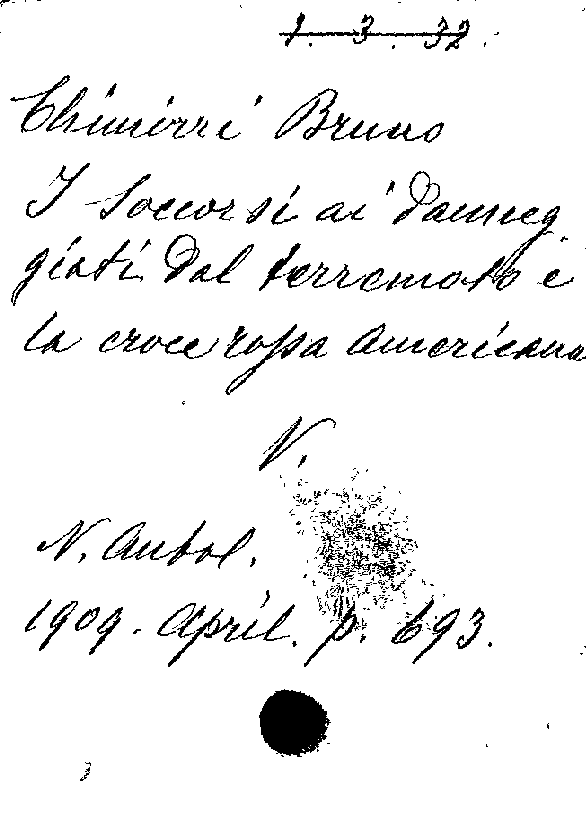 1. 3. 32.
Chimirri Bruno
I soccorsi ai danneg
giati dal terremoto e
la croce rossa Americana
N.
N. Antol.
1909. April. p. 693.